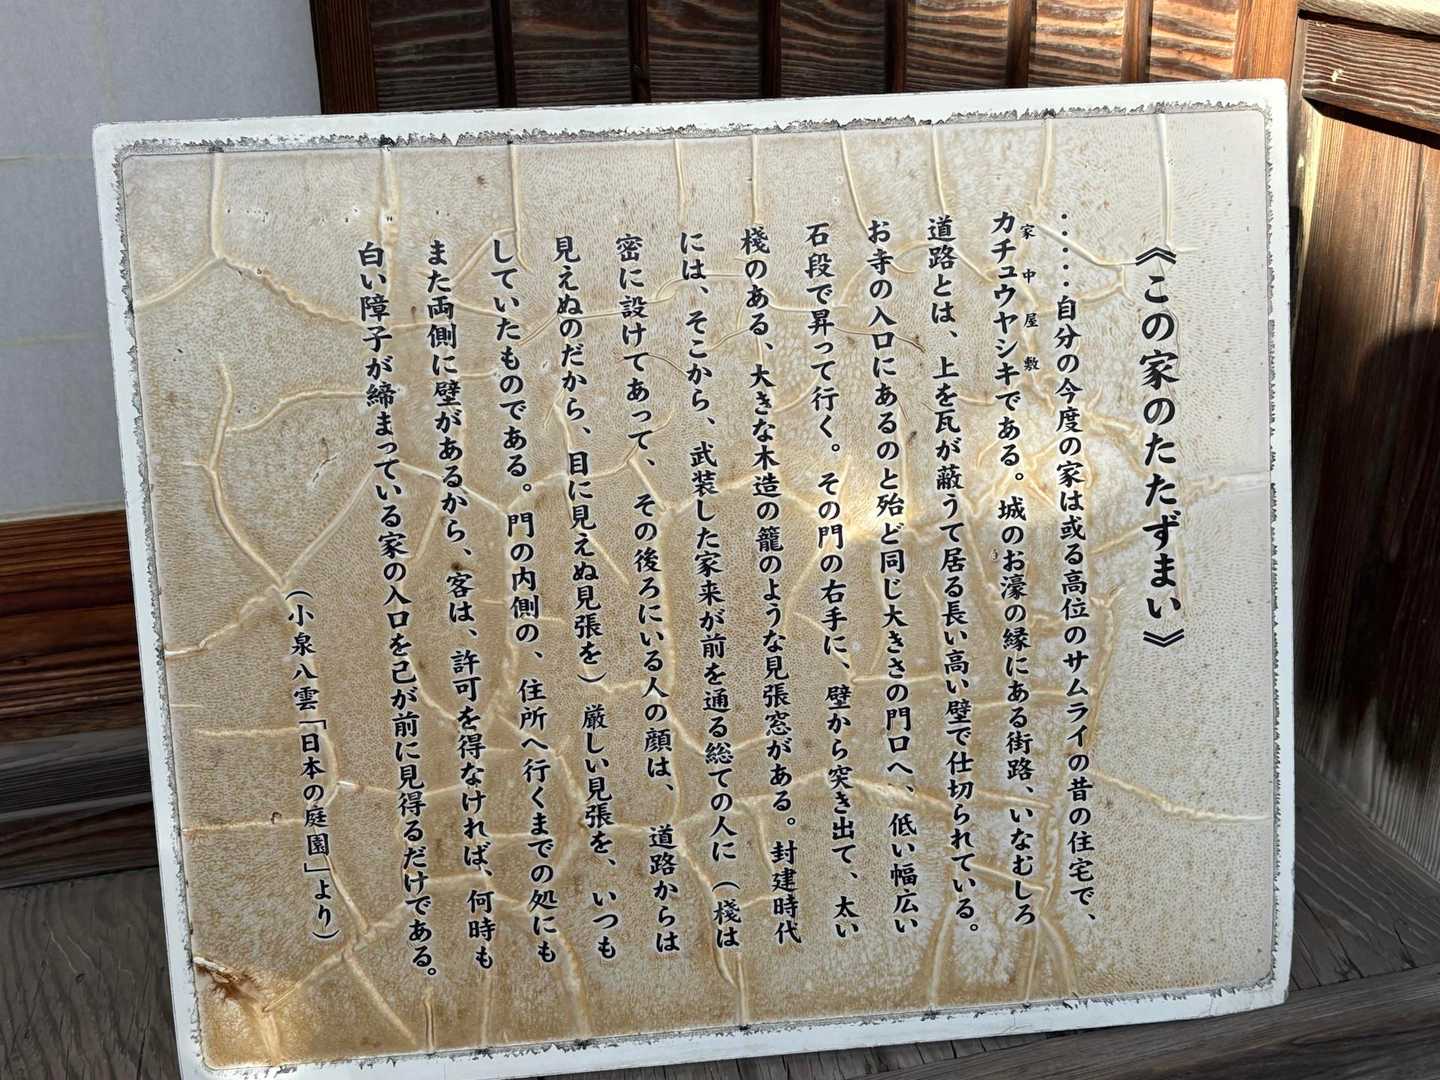 《この家のたたずまい》
‥‥‥自分の今度の家は或る高位のサムライの昔の住宅で、
カチュウヤシキである。城のお濠の縁にある街路、いなむしろ
家中屋敷
道路とは、上を瓦が蔽うて居る長い高い壁で仕切られている。
お寺の入口にあるのと殆ど同じ大きさの門口へ、低い幅広い
石段で昇って行く。その門の右手に、壁から突き出て、太い
棧のある、大きな木造の籠のような見張窓がある。封建時代
には、そこから、武装した家来が前を通る総ての人に（棧は
密に設けてあって、その後ろにいる人の顔は、道路からは
見えぬのだから、目に見えぬ見張を）厳しい見張を、いつも
していたものである。門の内側の、住所へ行くまでの処にも
また両側に壁があるから、客は、許可を得なければ、何時も
白い障子が締まっている家の入口を己が前に見得るだけである。
（小泉八雲「日本の庭園」より）